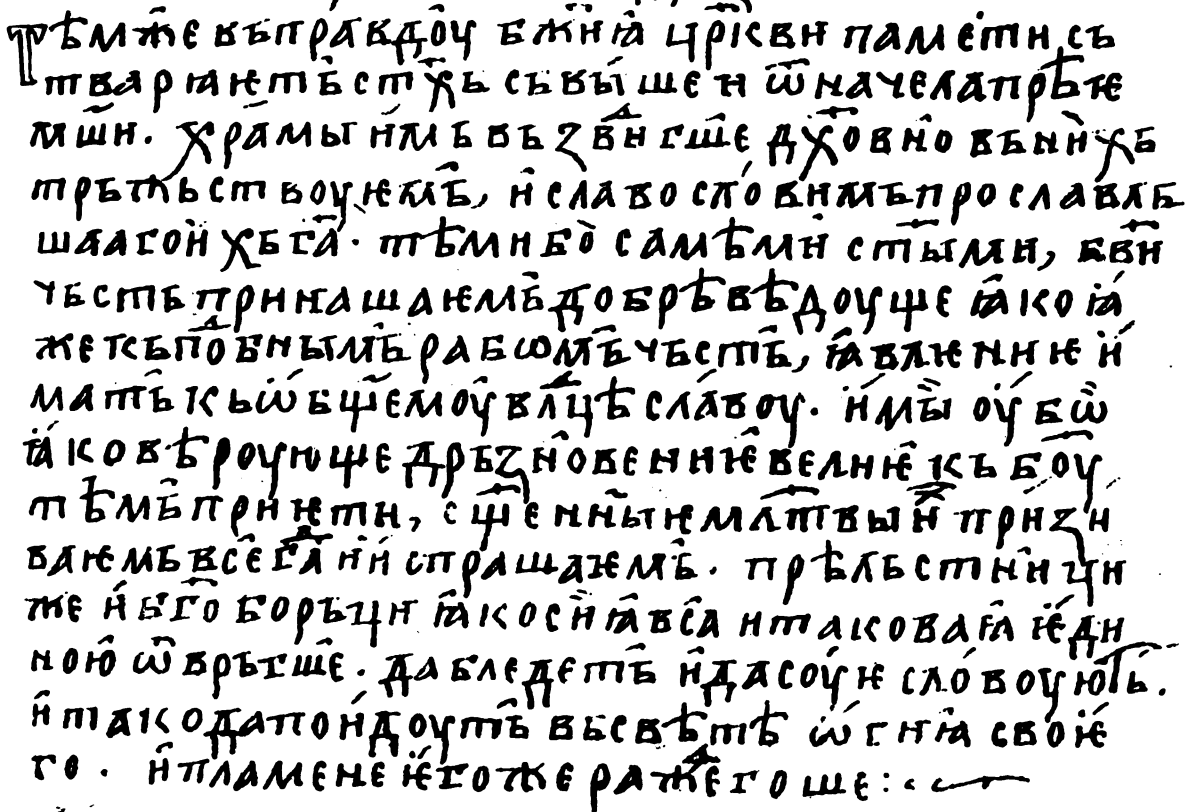 Тѣмже въправдоу бж҃їиꙗ цр҃кви памети съ
твараѥтьст҃хь съвыше и ѿначелапрѣѥ
мш҃и. храмы имь въꙁв҃игше дх҃овно въньхь
трьжьствоуѥмь, и славословимьпрославль
шаагоихьга҃. тѣмибо самѣми ст҃ыми, бв҃и
чьстьприинашаѥмьдобрѣвѣдоуще ꙗкоꙗ
жекьпⷣобнымьрабѡмьчьсть, ꙗвлѥниѥ и
мать кьѡбщемоу влⷣцѣ славоу. имы оубѡ
ꙗковѣроующе дрьꙁновенниѥ велиѥ къ боу҃
тѣмь приѥти, сщ҃енныѥмлт҃выи приꙁи
ваѥмь всегⷣа и испрашаѥмь. прѣльстници
же и бг҃оборьци ꙗкосиꙗвса итаковаꙗ ѥди
ною ѿврьгше. дабледеть идасоуѥ словоують.
и такодапоидоуть вьсвѣтѣ ѡгнꙗ своѥ
го. и пламене ѥгоже ражⷣегоше: